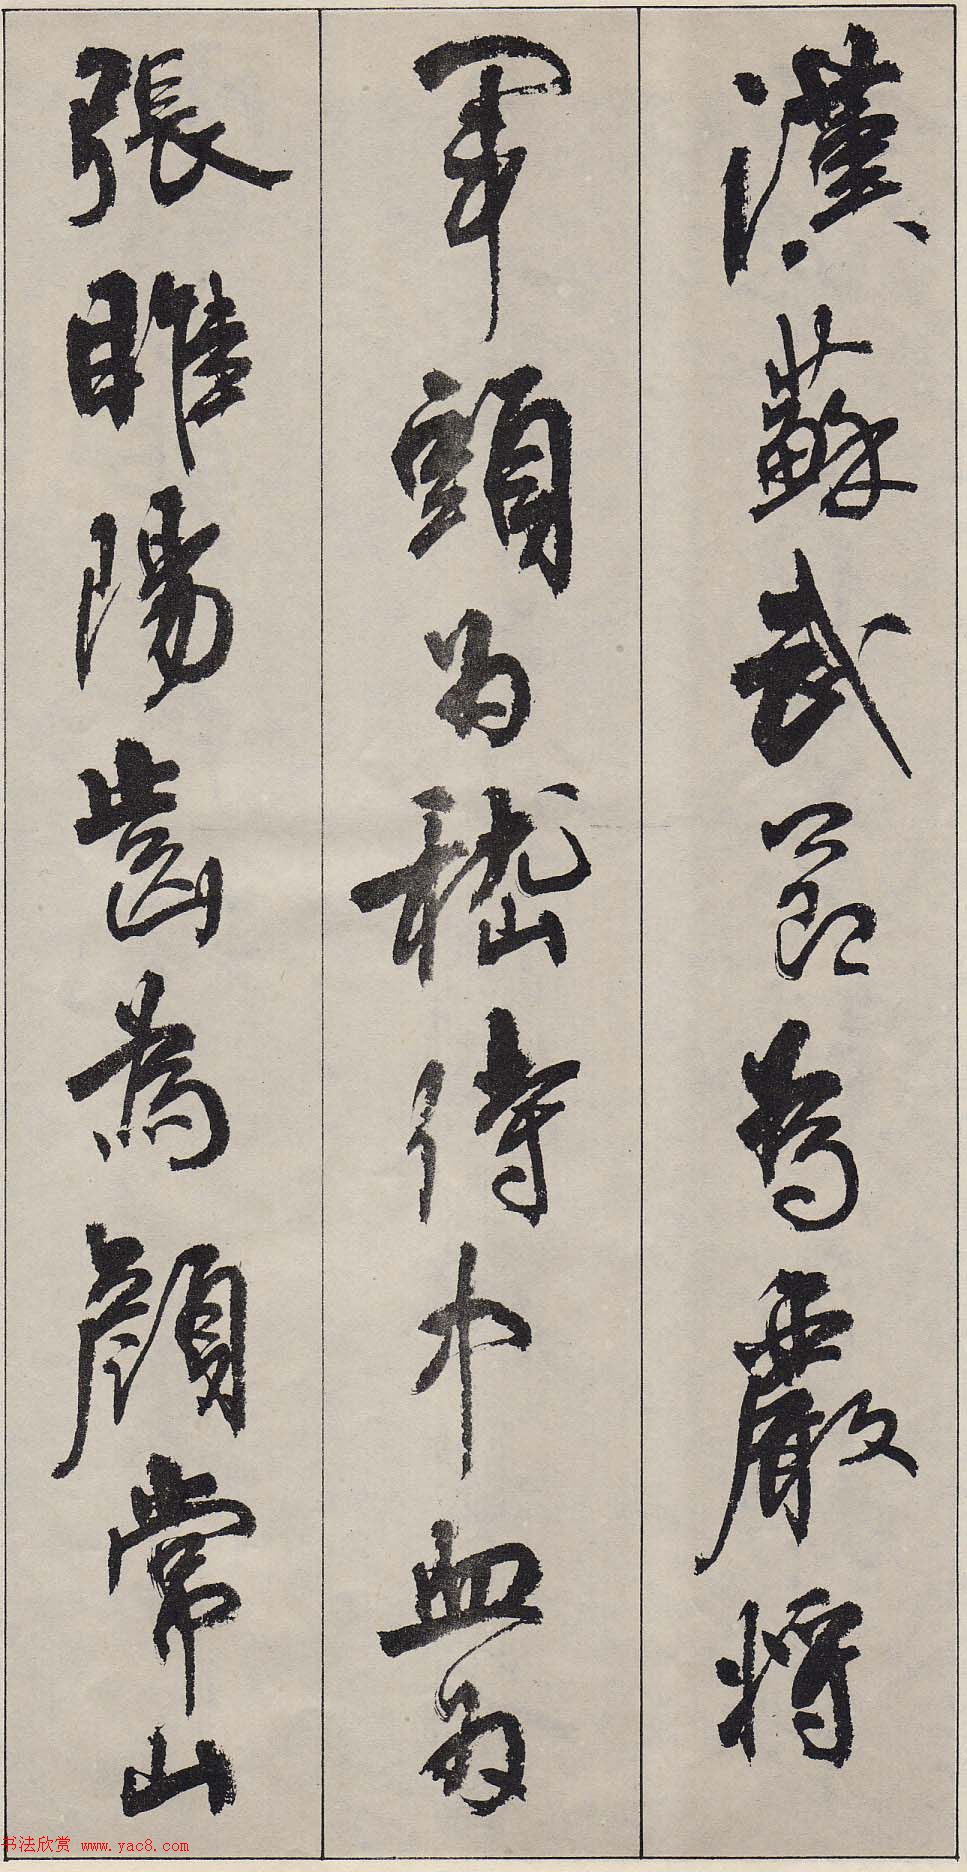 漢蘇武節為嚴將
軍頭為嵇侍中血為
張睢陽齒為顏常山
书法欣赏 www.yac8.com